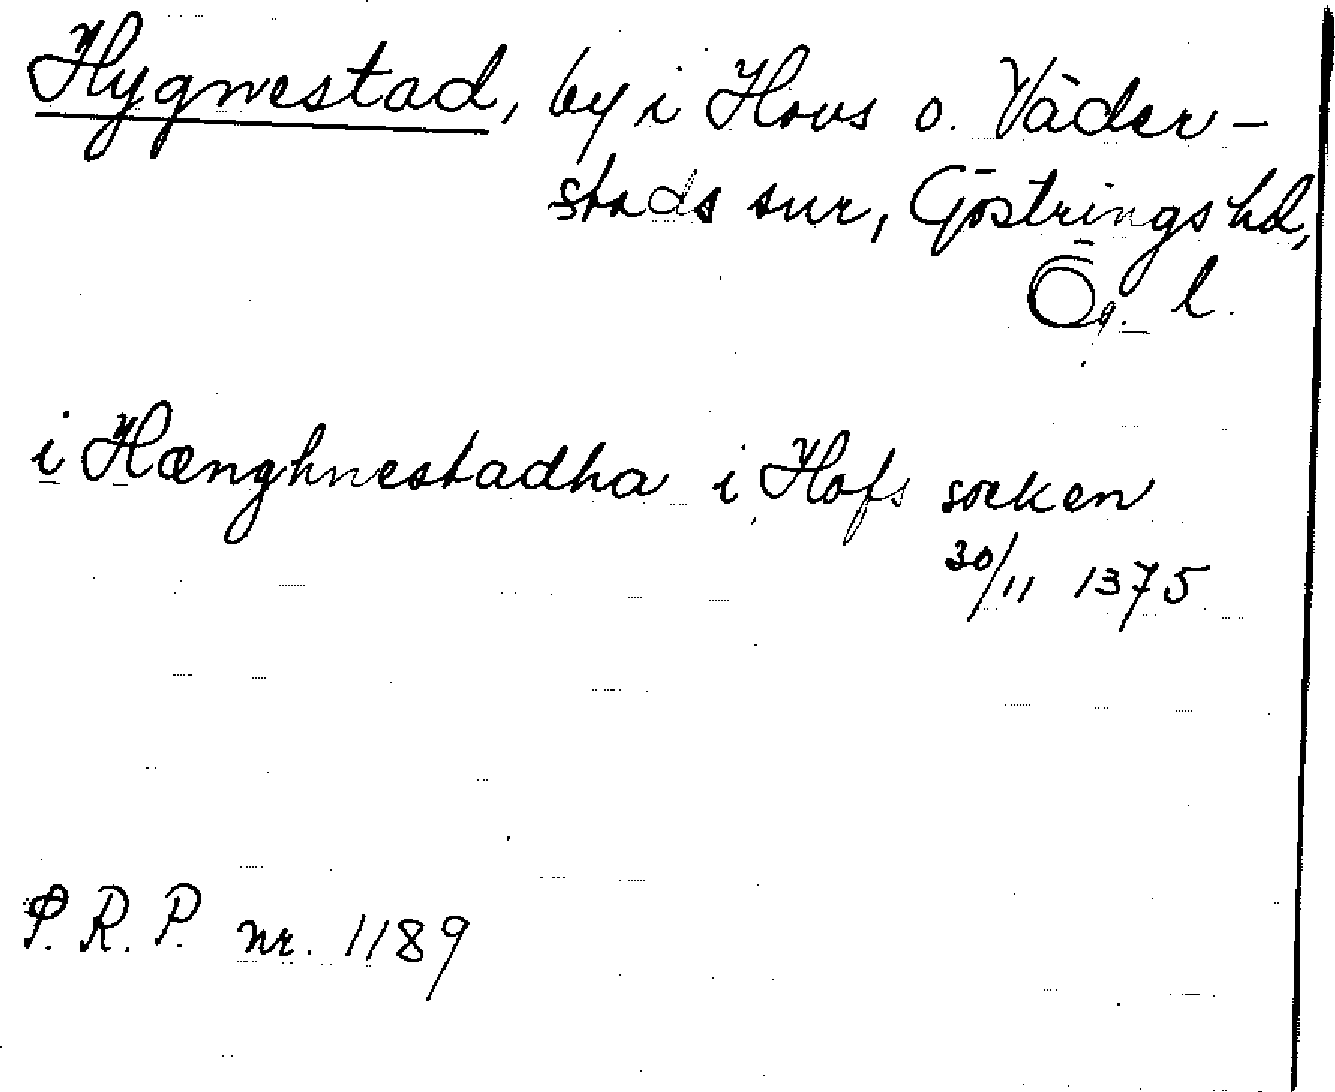 Hygnestad, by i Hovs o. Väder-
stads snr, Göstrings hd,
Ög. l.
i Hænghnestadha i Hofs socken
30/11 1375
P. R. P. nr. 1189